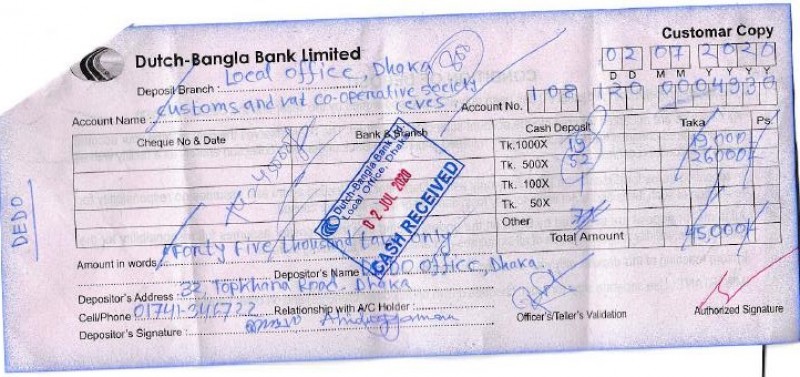 Customar Copy
Dutch-Bangla Bank Limited
02 07 2020
D D M M Y Y Y Y
Deposit Branch : Local office, Dhaka
customs and vat co-operative society
Account Name :
Account No. 108 120 0004939
Cheque No & Date Bank & Branch Cash Deposit Taka Ps.
Tk.1000X 19 19,000/
Tk. 500X 52 26000/
Tk. 100X
Tk. 50X
Other
Total Amount 45,000/
Dutch-Bangla Bank
Local Office, Dhaka
02 JUL 2020
CASH RECEIVED
DEDO
Amount in words : Fonty five thousand taka only
Depositor's Name : DEDO office, Dhaka.
Depositor's Address : 32, Topkhana Road, Dhaka
Cell/Phone : 01741-346722 Relationship with A/C Holder :
Depositor's Signature :
Officer's/Teller's Validation
Authorized Signature